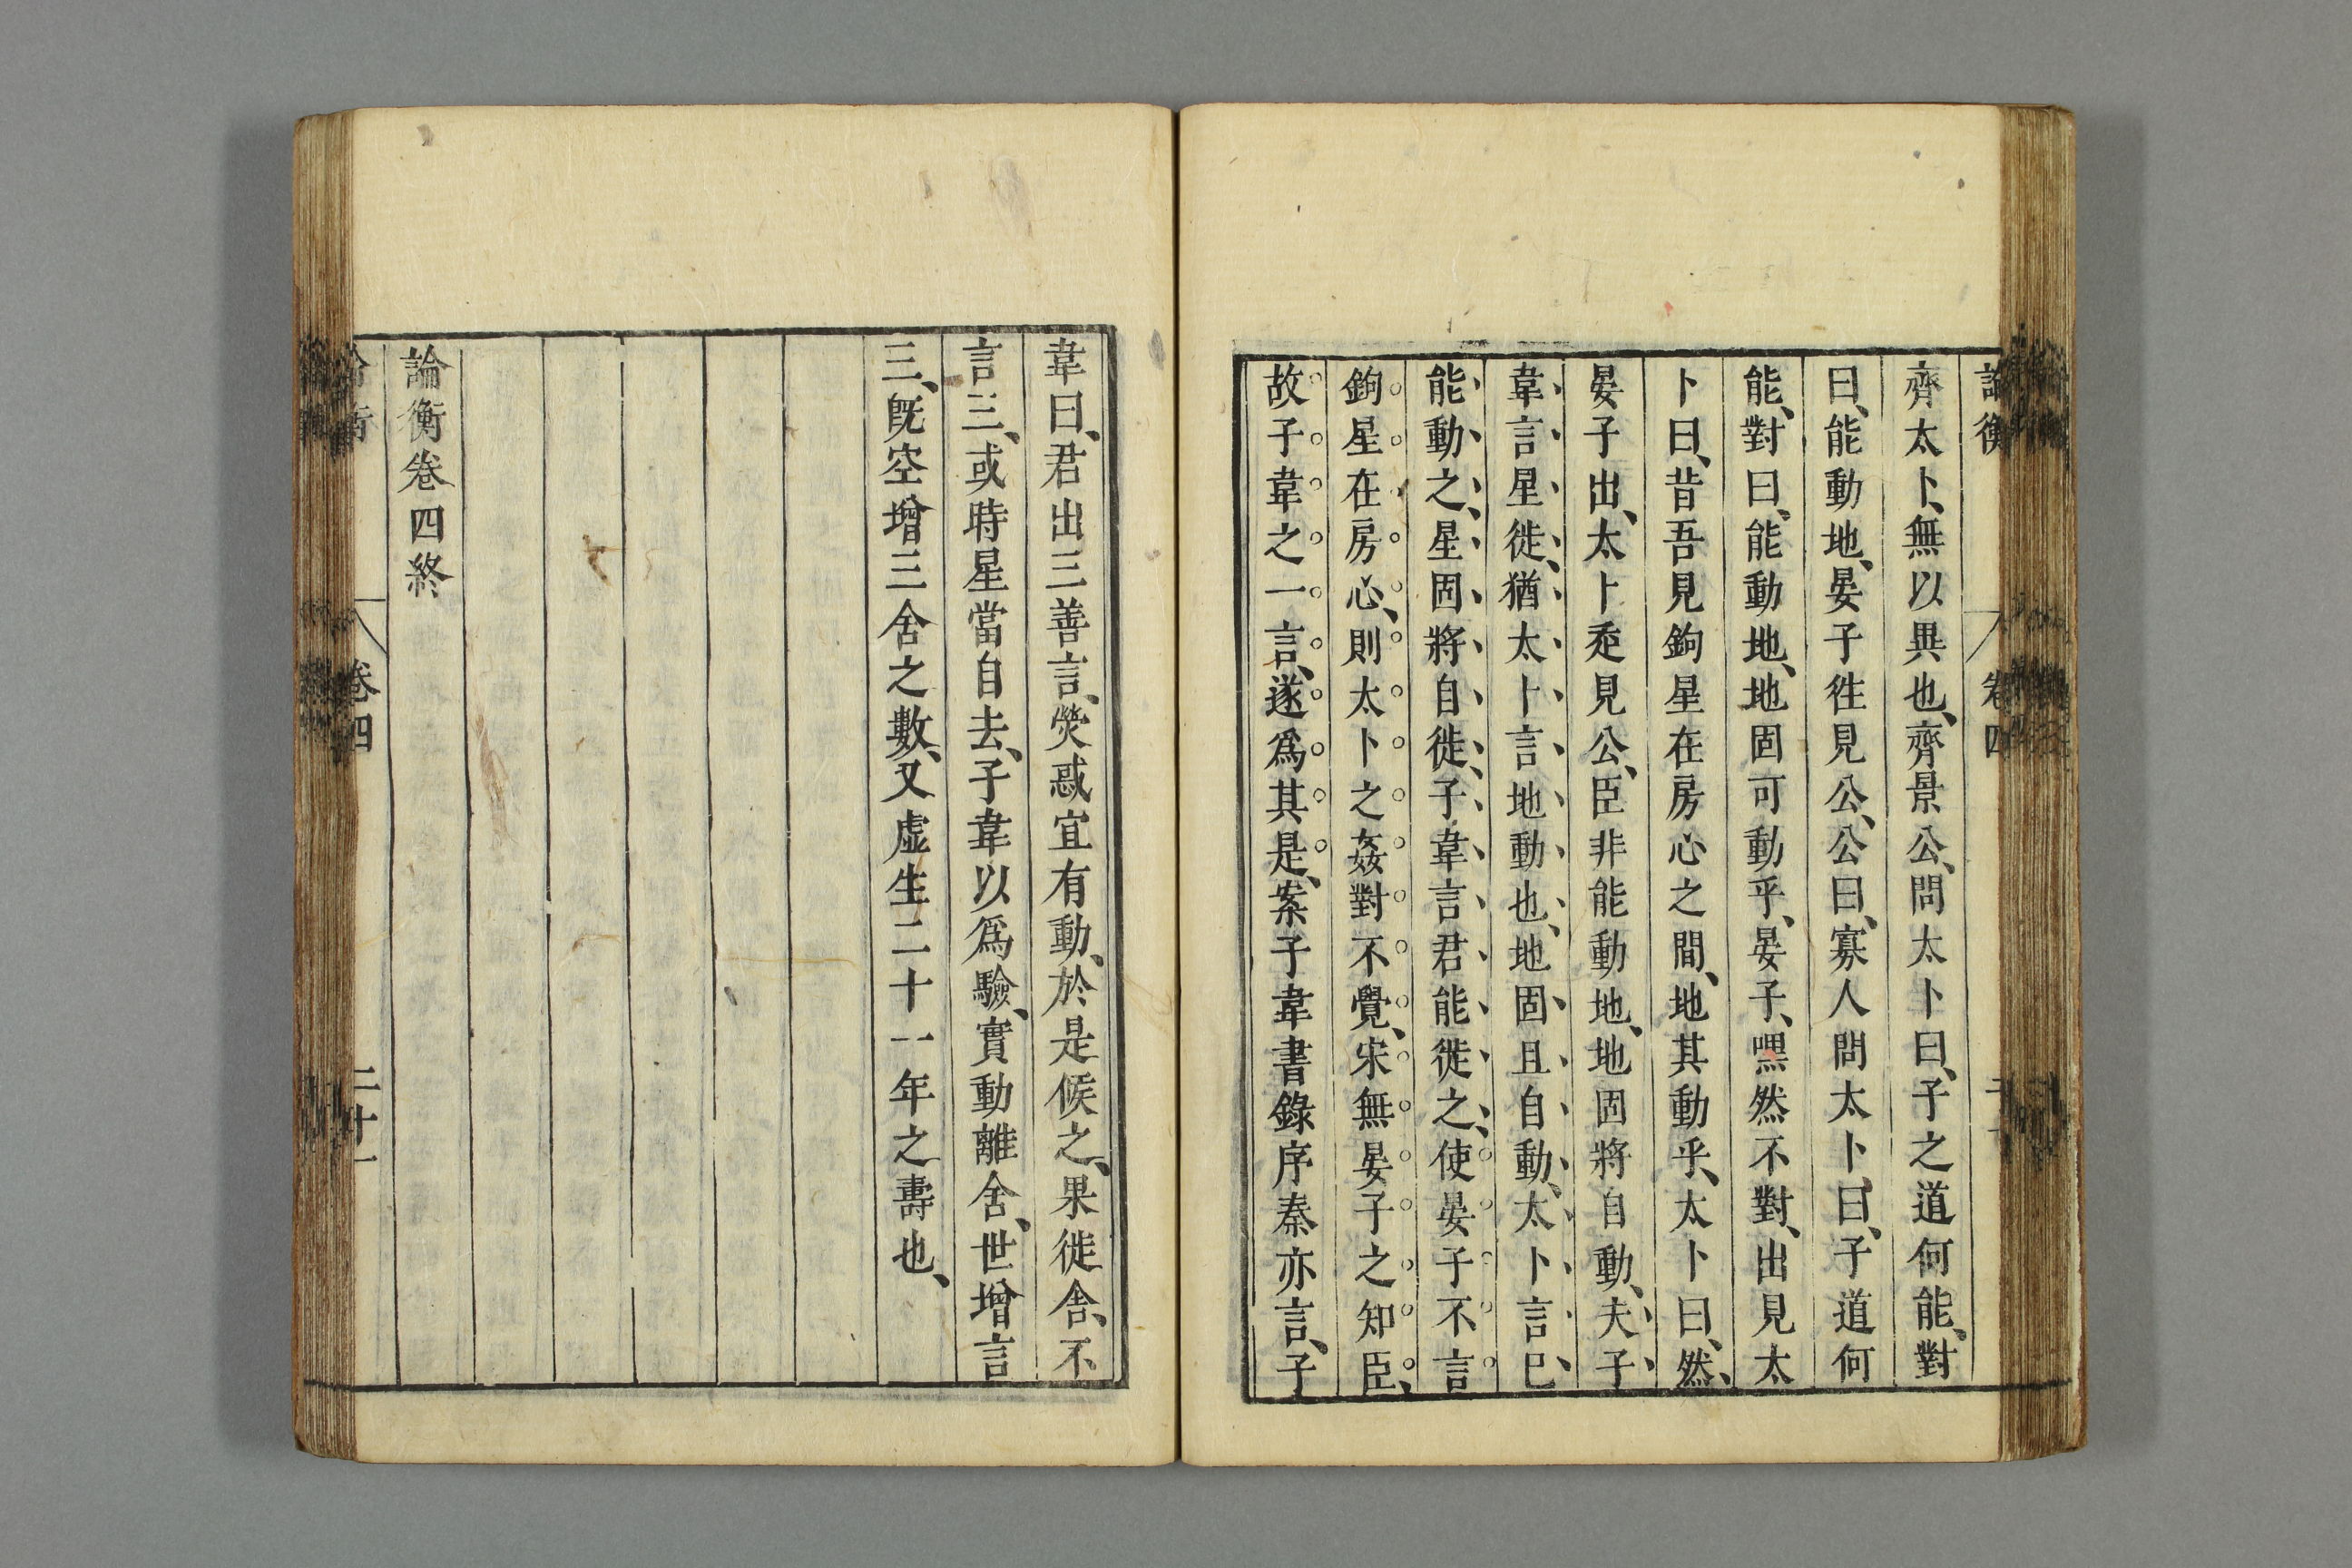 論衡 卷四
齊太卜、無以異也、齊景公、問太卜曰、子之道何能、對
曰、能動地、晏子徃見公、公曰、寡人問太卜、曰、子道何
能、對曰、能動地、地固可動乎、晏子、嘿然不對、出見太
卜曰、昔吾見鉤星在房心之間、地其動乎、太卜曰、然、
晏子出、太卜走見公、臣非能動地、地固將自動、夫子、
韋言星徙、猶太卜言地動也、地固且自動、太卜言已
能動之、星固將自徙、子韋言君能徙之、使晏子不言
鉤星在房心、則太卜之姦對不覺、宋無晏子之知臣、
故子韋之一言、遂爲其是、案子韋書錄序秦亦言、子
韋曰、君出三善言、熒惑宜有動、於是候之、果徙舎、不
言三、或時星當自去、子韋以爲驗、實動離舎、世增言
三、旣空增三舎之數、又虛生二十一年之壽也、
論衡卷四終
卷四 二十一